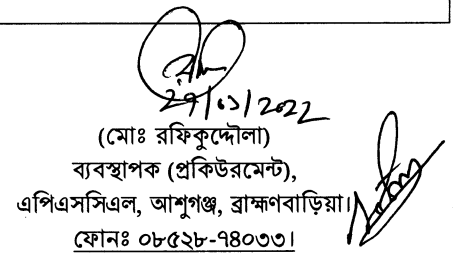 ২৭/০১/২০২২
(মোঃ রফিকুদ্দৌলা)
ব্যবস্থাপক (প্রকিউরমেন্ট),
এপিএসসিএল, আশুগঞ্জ, ব্রাহ্মণবাড়িয়া।
ফোনঃ ০৮৫২৮-৭৪০৩৩।